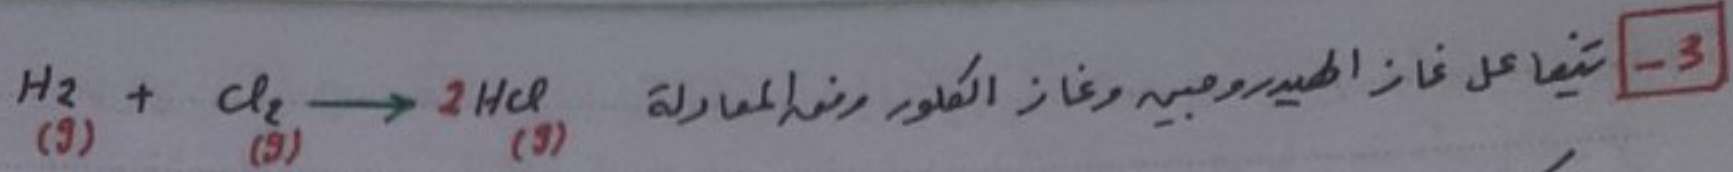 3- تتفاعل غاز الهيدروجين وغاز الكلور وفق المعادلة H2 + Cl2 → 2HCl
(g) (g) (g)